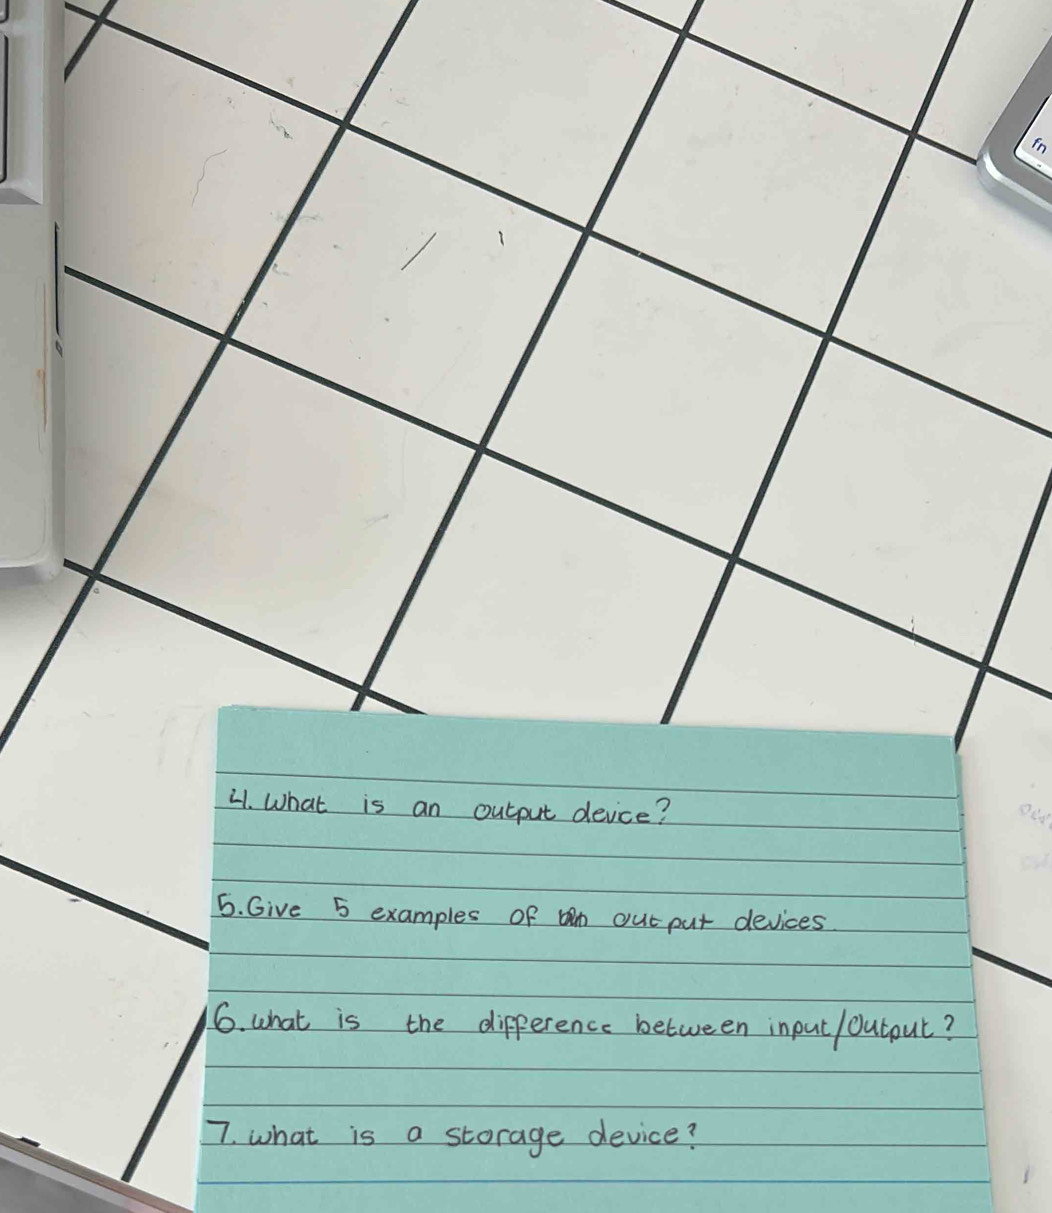 fn
4. What is an output device?
5. Give 5 examples of output devices.
6. what is the difference between input/output?
7. what is a storage device?